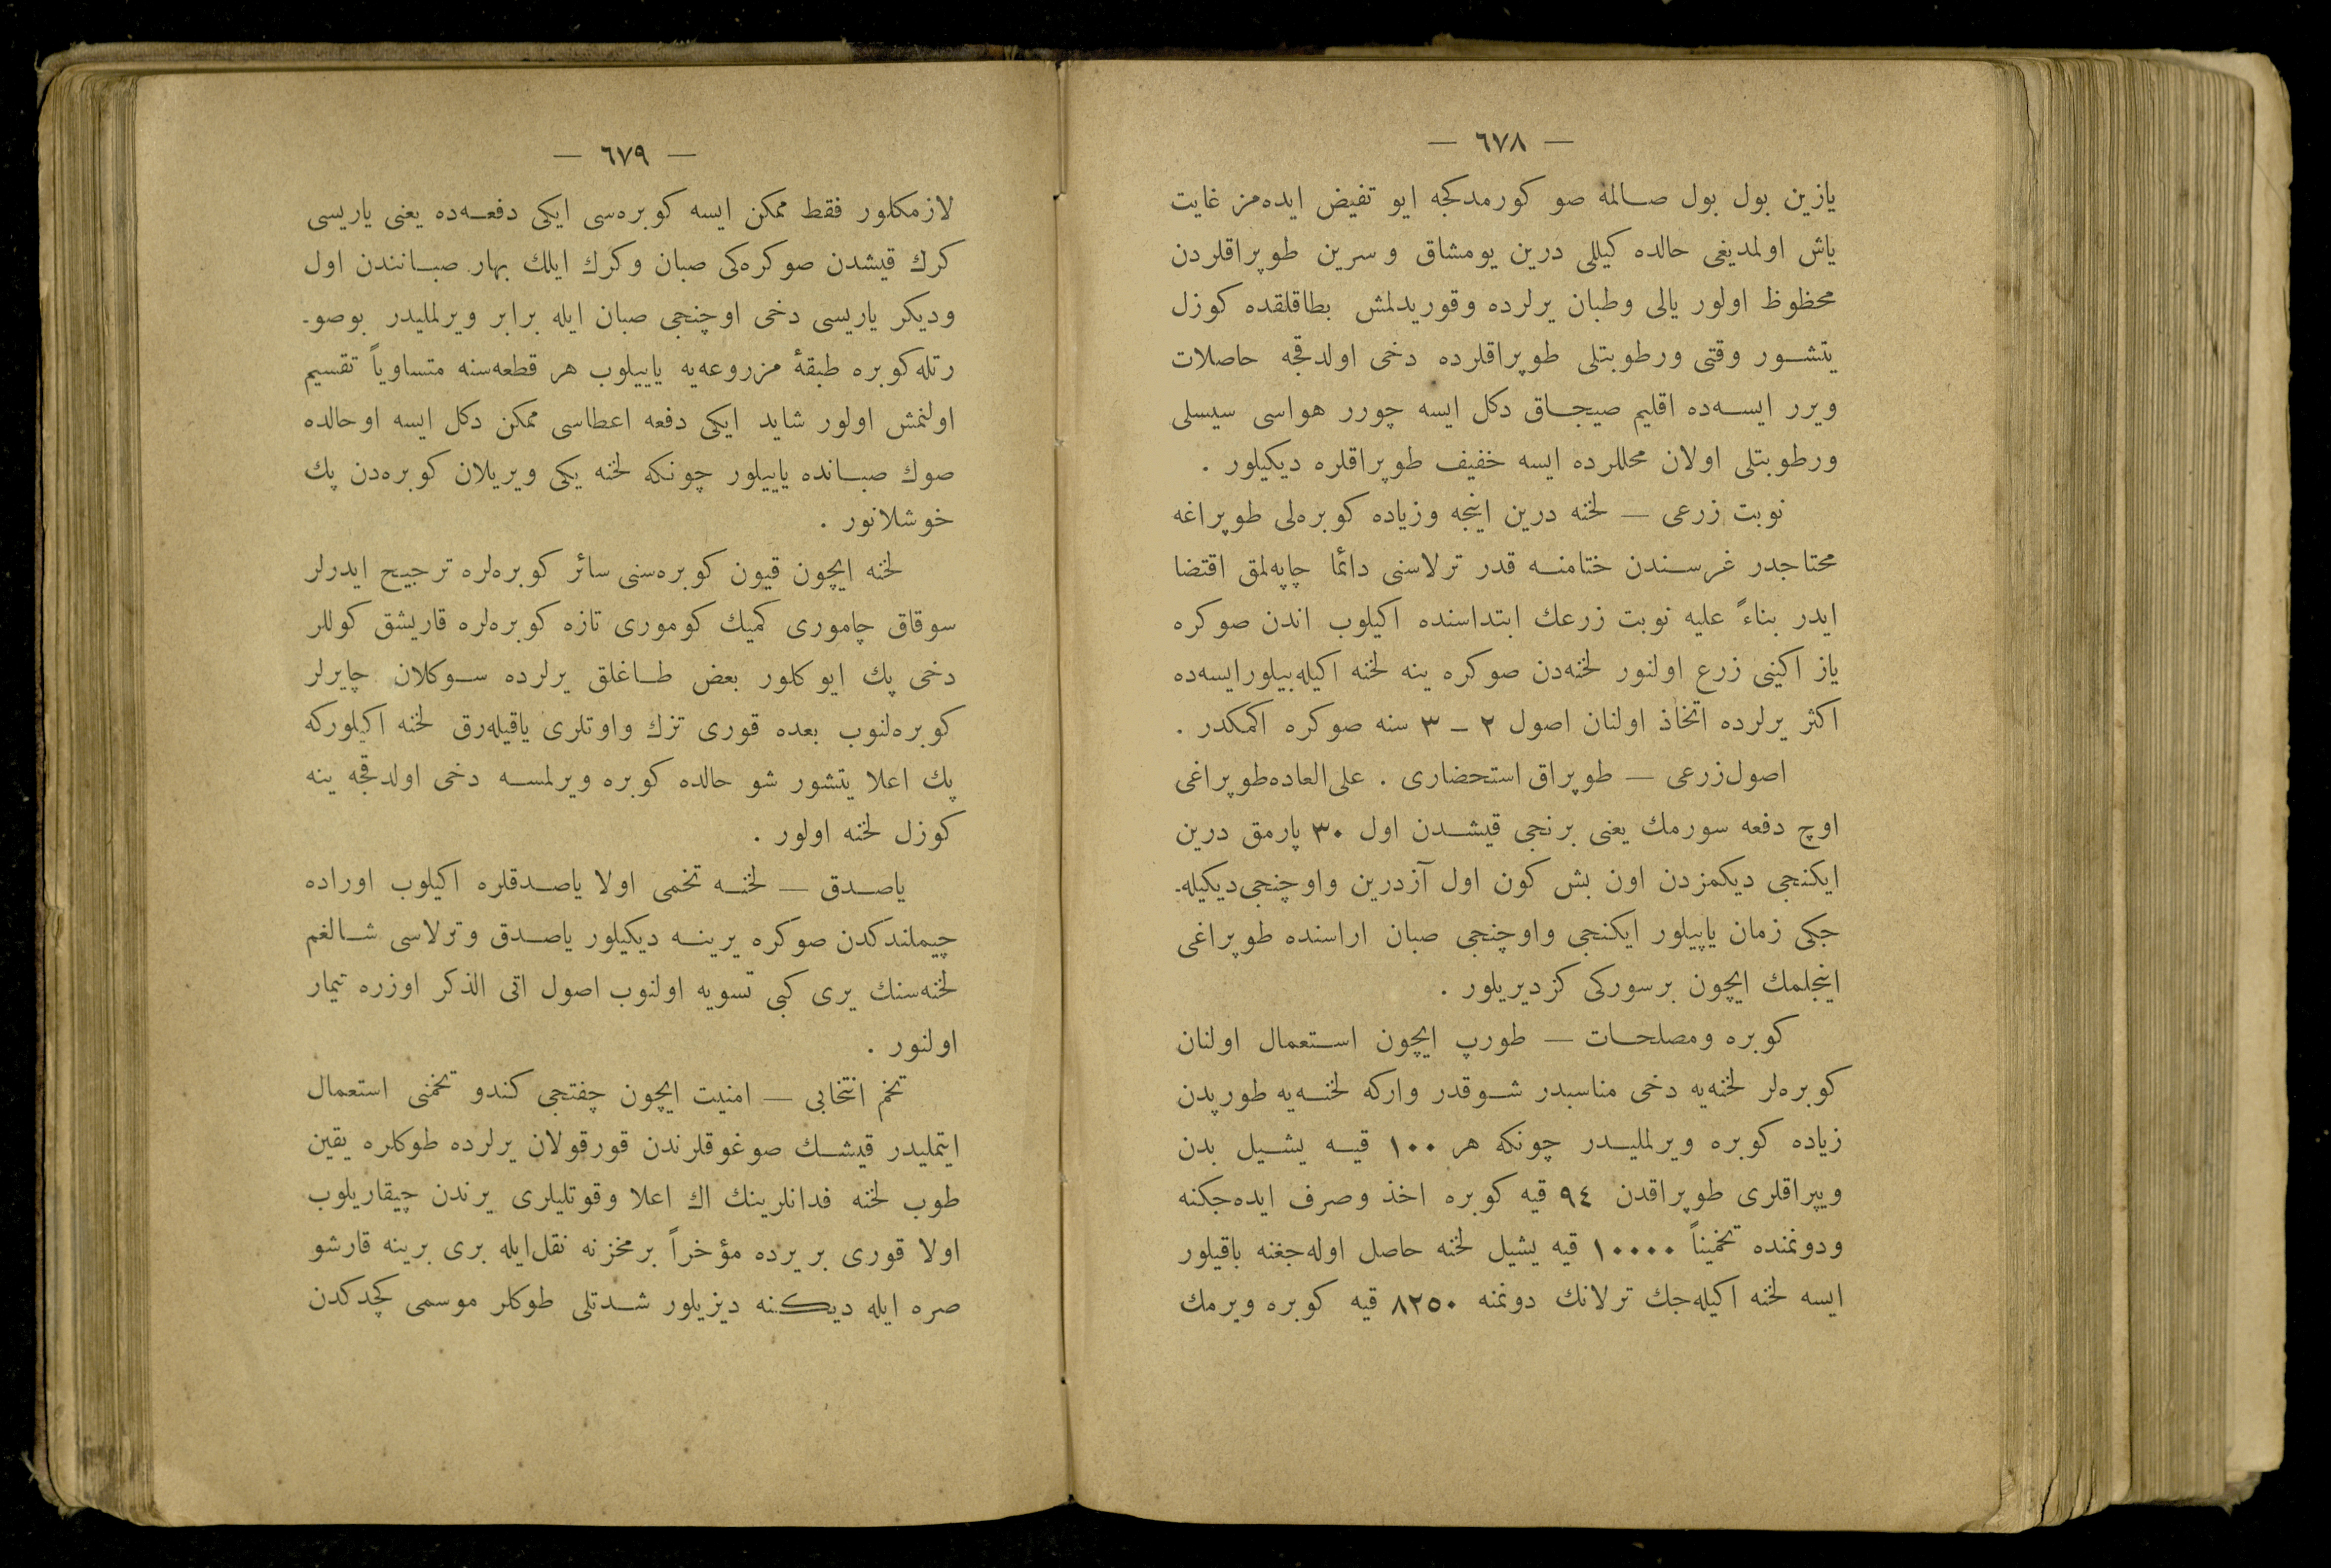 — ٦٧٨ —
یازین بول بول صالمه صو كورمدكجه ایو تفیض ایده‌مز غایت
یاش اولمدیغی حالده كیللی درین یومشاق و سرین طوپراقلردن
محظوظ اولور یالی وطبان یرلرده وقوریدلمش بطاقلقده كوزل
یتشور وقتی ورطوبتلی طوپراقلرده دخی اولدقجه حاصلات
ویرر ایسه‌ده اقلیم صیجاق دكل ایسه چورر هواسی سیسلی
ورطوبتلی اولان محللرده ایسه خفیف طوپراقلره دیكیلور .
نوبت زرعی — لخنه درین اینجه وزیاده كوبره‌لی طوپراغه
محتاجدر غرسندن ختامنه قدر ترلاسنی دائما چاپه‌لمق اقتضا
ایدر بناءً علیه نوبت زرعك ابتداسنده اكیلوب اندن صوكره
یاز اكینی زرع اولنور لخنه‌دن صوكره ینه لخنه اكیله‌بیلورایسه‌ده
اكثر یرلرده اتخاذ اولنان اصول ٢ – ٣ سنه صوكره اكمكدر .
اصول‌زرعی — طوپراق استحضاری . علی‌العاده‌طوپراغی
اوچ دفعه سورمك یعنی برنجی قیشدن اول ٣٠ پارمق درین
ایكنجی دیكمزدن اون بش كون اول آزدرین واوچنجی‌دیكیله‌-
جكی زمان یاپیلور ایكنجی واوچنجی صبان اراسنده طوپراغی
اینجلمك ایچون برسوركی كزدیریلور .
كوبره ومصلحات — طورپ ایچون استعمال اولنان
كوبره‌لر لخنه‌یه دخی مناسبدر شوقدر واركه لخنه‌یه طورپدن
زیاده كوبره ویرلملیدر چونكه هر ١٠٠ قیه یشیل بدن
ویپراقلری طوپراقدن ٩٤ قیه كوبره اخذ وصرف ایده‌جكنه
ودونمنده تخمیناً ١٠٠٠٠ قیه یشیل لخنه حاصل اوله‌جغنه باقیلور
ایسه لخنه اكیله‌جك ترلانك دونمنه ٨٢٥٠ قیه كوبره ویرمك
— ٦٧٩ —
لازمكلور فقط ممكن ایسه كوبره‌سی ایكی دفعه‌ده یعنی یاریسی
كرك قیشدن صوكره‌كی صبان وكرك ایلك بهار صبانندن اول
ودیكر یاریسی دخی اوچنجی صبان ایله برابر ویرلملیدر بوصو-
رتله‌كوبره طبقهٔ مزروعه‌یه یاییلوب هر قطعه‌سنه متساویاً تقسیم
اولنمش اولور شاید ایكی دفعه اعطاسی ممكن دكل ایسه اوحالده
صوك صبانده یاییلور چونكه لخنه یكی ویریلان كوبره‌دن پك
خوشلانور .
لخنه ایچون قیون كوبره‌سنی سائر كوبره‌لره ترجیح ایدرلر
سوقاق چاموری كمیك كوموری تازه كوبره‌لره قاریشق كوللر
دخی پك ایو كلور بعض طاغلق یرلرده سوكلان چایرلر
كوبره‌لنوب بعده قوری تزك واوتلری یاقیله‌رق لخنه اكیلوركه
پك اعلا یتشور شو حالده كوبره ویرلمسه دخی اولدقجه ینه
كوزل لخنه اولور .
یاصدق — لخنه تخمی اولا یاصدقلره اكیلوب اوراده
چیملندكدن صوكره یرینه دیكیلور یاصدق وترلاسی شالغم
لخنه‌سنك یری كبی تسویه اولنوب اصول اتی الذكر اوزره تیمار
اولنور .
تخم انتخابی — امنیت ایچون چفتجی كندو تخمنی استعمال
ایتملیدر قیشك صوغوقلرندن قورقولان یرلرده طوكلره یقین
طوب لخنه فدانلرینك اك اعلا وقوتلیلری یرندن چیقاریلوب
اولا قوری بریرده مؤخراً برمخزنه نقل‌ایله بری برینه قارشو
صره ایله دیكنه دیزیلور شدتلی طوكلر موسمی كچدكدن